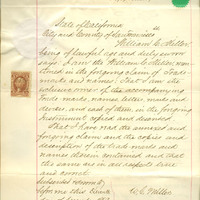 State of California
City and County of San Francisco
William C. Miller
being of lawful age and duly sworn
says I am the William C. Miller,
mentioned in the foregoing claim of Trade
marks and names; That I am the
exclusive owner of the accompanying
Trade marks, names, letters, marks and
and each of them, in the foregoing
Instrument copied and
That I have read the annexed and
foregoing claim and the copies and
description of the trade marks and
names therein contained and that
the same are in all respects true
and correct
Subscribed & sworn to
before me this
W. C. Miller